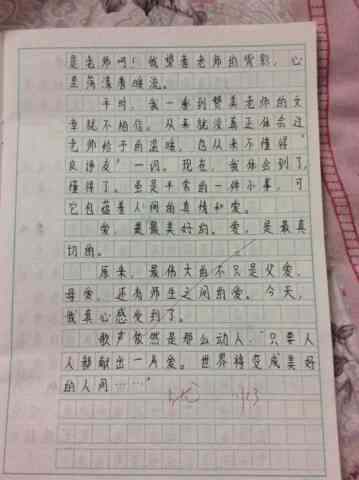 是老师吗！我望着老师的背影，心
里荡漾着暖流。
平时，我一看到赞美老师的文
章就不相信。从来就没真正体会过
老师给予的温暖，也从来不懂得"
良师友"一词。现在，我体会到了，
懂得了。虽是平常的一件小事，可
它包蕴着人间的真情和爱。
爱，是最美好的。爱，是最真
切的。
原来，最伟大的不只是父爱，
母爱，还有师生之间的爱。今天，
我真心感受到了。
歌声依然是那么动人，"只要人
人都献出一片爱。世界将变成美好
的人间……"